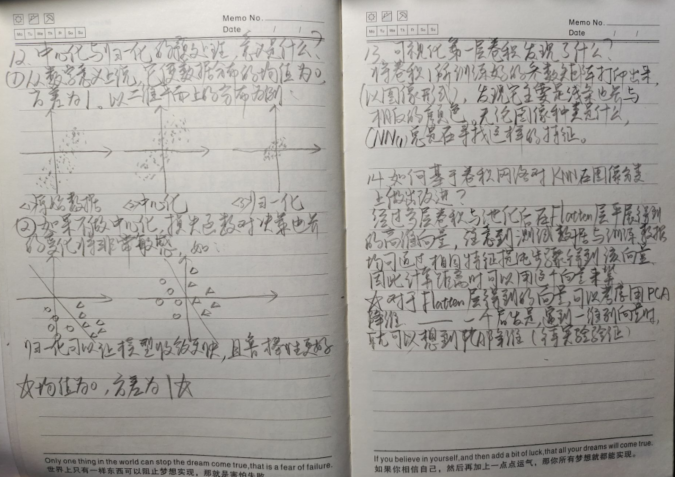 Memo No.
Mo Tu We Th Fr Sa Su
Date / /
12. 中心化与归一化的意义是什么?
① 从数学意义上说,它使数据分布的均值为0,
方差为1。以二维平面上的分布为例:
<1>原始数据 <2>中心化 <3>归一化
② 如果不做中心化,损失函数对决策边界
的变化将非常敏感,如:
归一化可以让模型收敛更快,且鲁棒性更好
☆均值为0,方差为1☆
Only one thing in the world can stop the dream come true,that is a fear of failure.
世界上只有一样东西可以阻止梦想实现,那就是害怕失败
Memo No.
Mo Tu We Th Fr Sa Su
Date / /
13. 可视化第一层卷积发现了什么?
将卷积1所训练好的参数矩阵打印出来
(以图像形式),发现它主要是线条边界与
相反的颜色。无论图像种类是什么,
CNN总是在寻找这样的特征。
14. 如何基于卷积网络对KNN在图像分类
上做出改进?
经过多层卷积与池化后在Flatten层平展得到
的向量,注意到测试数据与训练数据
均可通过相同特征提取步骤得到该向量
因此计算距离时可以用这个向量来算
☆对于Flatten层得到的向量,可以考虑用PCA
降维 —— 一个启发是,看到一维到向量时,
就可以想到PCA降维(待实验验证)
If you believe in yourself,and then add a bit of luck,that all your dreams will come true.
如果你相信自己,然后再加上一点点运气,那你所有梦想就都能实现。